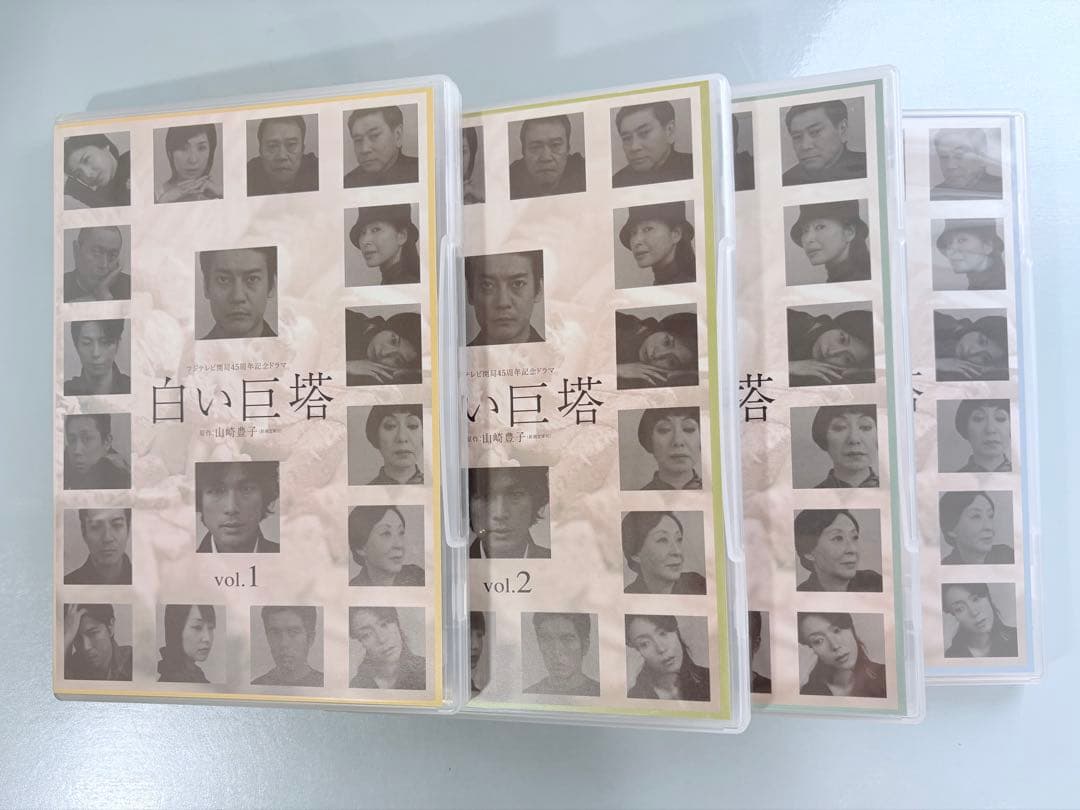 フジテレビ開局45周年記念ドラマ
白い巨塔
原作:山崎豊子
vol.1
テレビ開局45周年記念ドラマ
い巨塔
原作:山崎豊子
vol.2
塔